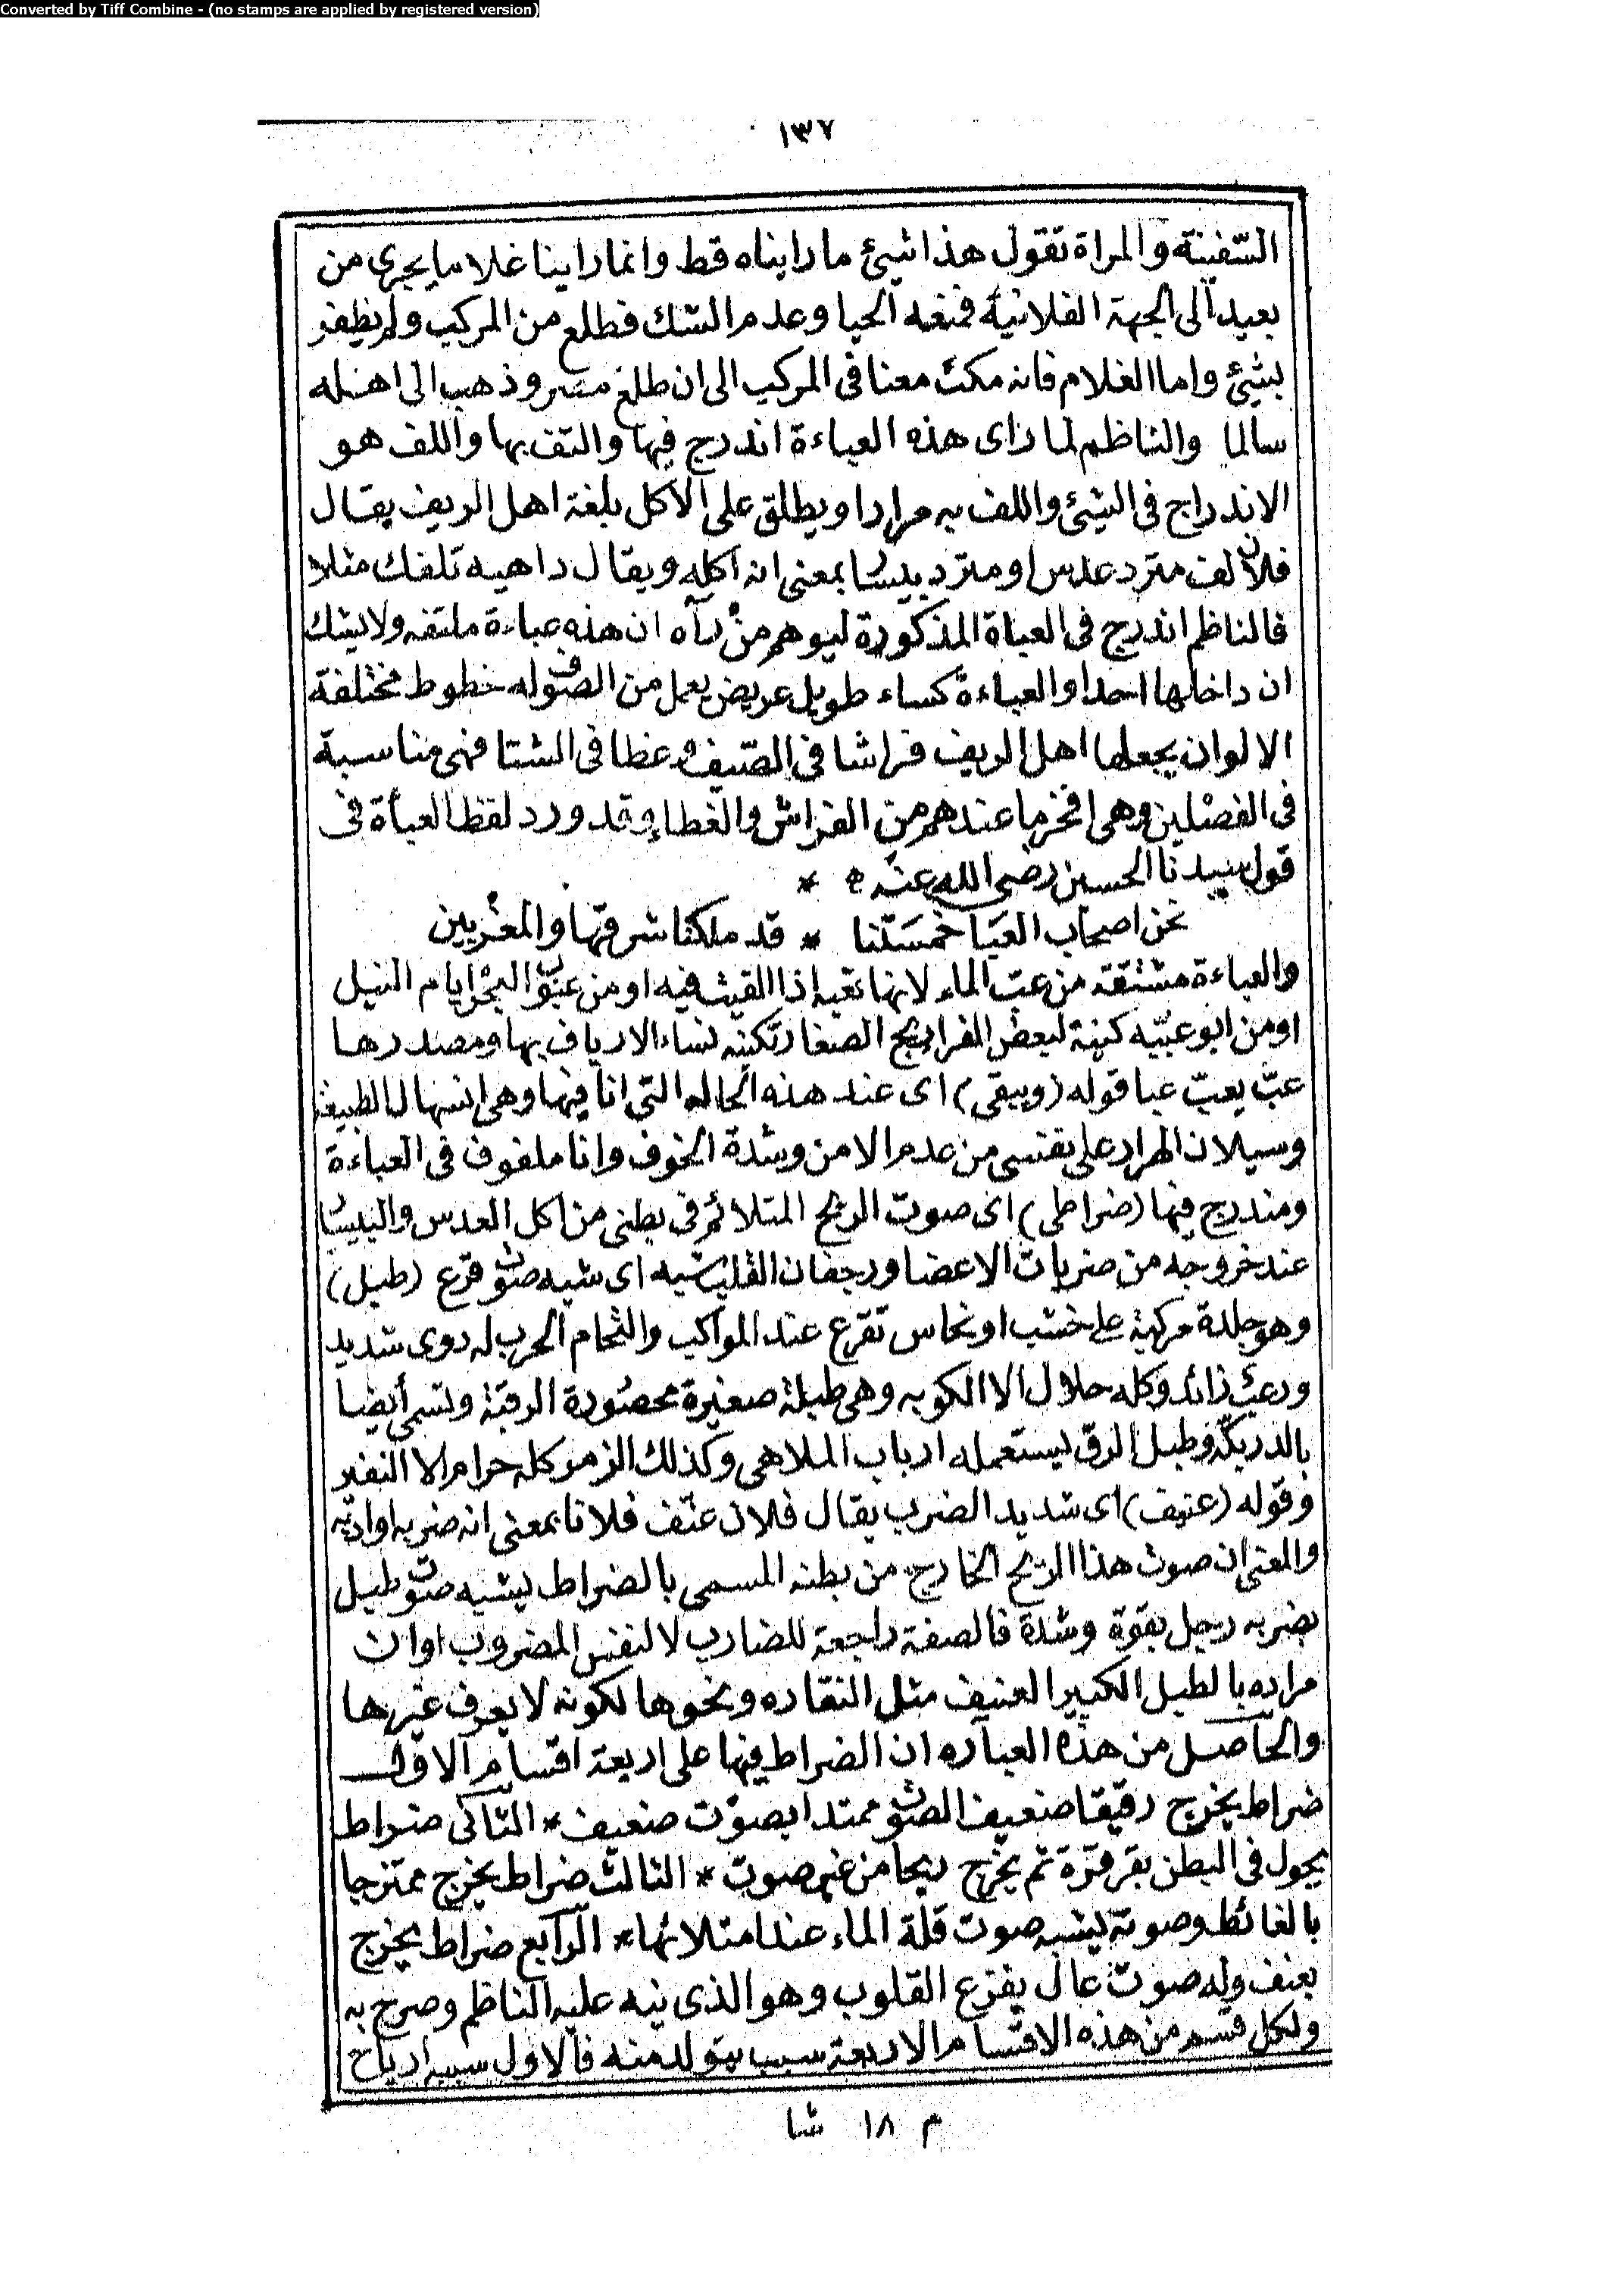 Converted by Tiff Combine - (no stamps are applied by registered version)
١٣٧
السّفينة والمراة تقول هذا شيئ ما رايناه قط وانما راينا غلاما يجرى من
بعيد الى الجهة الفلانية فمنعه الحيا وعدم الشك فطلع من المركب ولم يظفر
بشيئ واما الغلام فانه مكث معنا فى المركب الى ان طلع مصر وذهب الى اهله
سالما والناظم لما راى هذه العباءة اندرج فيها والتف بها واللف هو
الاندراج فى الشيئ واللف به مرارا ويطلق على الاكل بلغة اهل الريف يقال
فلان لف مترد عدس او مترد بيسار بمعنى انه اكله ويقال داهيه تلفك مثلا
فالناظم اندرج فى العباة المذكورة ليوهم من رآه ان هذه عباءة ملتفه ولا يشك
ان داخلها احدا والعباءة كساء طويل عريض يعمل من الصوف له خطوط مختلفة
الالوان يجعلها اهل الريف فراشا فى الصّيف وغطا فى الشتا فهى مناسبة
فى الفصلين وهى افخر ما عندهم من الفراش والغطاء وقد ورد لفظ العباءة فى
قول سيدنا الحسين رضى الله عنه *
نحن اصحاب العبا خمستنا * قد ملكنا شرقها والمغربين
والعباءة مشتقة من عب الماء لانها تعبه اذا القيت فيه او من عبوب البحر ايام النيل
او من ابو عبيّه كنية لبعض الفراريج الصغار تكنيه نساء الارياف بها ومصدرها
عبّ يعبّ عبا قوله (ويبقى) اى عند هذه الحاله التى انا فيها وهى انسهال الطبيعة
وسيلان المراد على نفسى من عدم الامن وشدة الخوف وانا ملفوف فى العباءة
ومندرج فيها (ضراطى) اى صوت الريح المتلاثم فى بطنى من اكل العدس والبيسار
عند خروجه من ضربات الاعضا ورجفان القلب شبه اى شبه صوت قرع (طبل)
وهو جلدة مركبة على خشب او نحاس تقرع عند المواكب والتحام الحرب له دوى شديد
ورعب زائد وكله حلال الا الكوبه وهى طبلة صغيرة محصورة الرقبة وتسمى أيضا
بالدربكّة وطبل الرق يستعمله ارباب الملاهى وكذلك الزمر كله حرام الا النفير
وقوله (عنيف) اى شديد الضرب يقال فلان عنّف فلانا بمعنى انه ضربه او ادبه
والمعنى ان صوت هذا الريح الخارج من بطنه المسمى بالضراط يشبه صوت طبل
يضربه رجل بقوة وشدة فالصفة راجعة للضارب لا لنفس المضروب او ان
مراده بالطبل الكبير العنيف مثل النقاره ونحوها لكونه لا يعرف غيرها
والحاصل من هذه العباره ان الضراط فيها على اربعة اقسام الاول
ضراط يخرج رقيقا ضعيف الصوت ممتدا بصوت ضعيف * الثانى ضراط
يجول فى البطن بقرقرة ثم يخرج ريحا من غير صوت * الثالث ضراط يخرج ممتزجا
بالغائط وصوته يشبه صوت قلة الماء عند امتلائها * الرابع ضراط يخرج
بعنف وله صوت عال يفزع القلوب وهو الذى نبه عليه الناظم وصرح به
ولكل قسم من هذه الاقسام الاربعة سبب يتولد منه فالاول سببه ارياح
م ١٨ شا